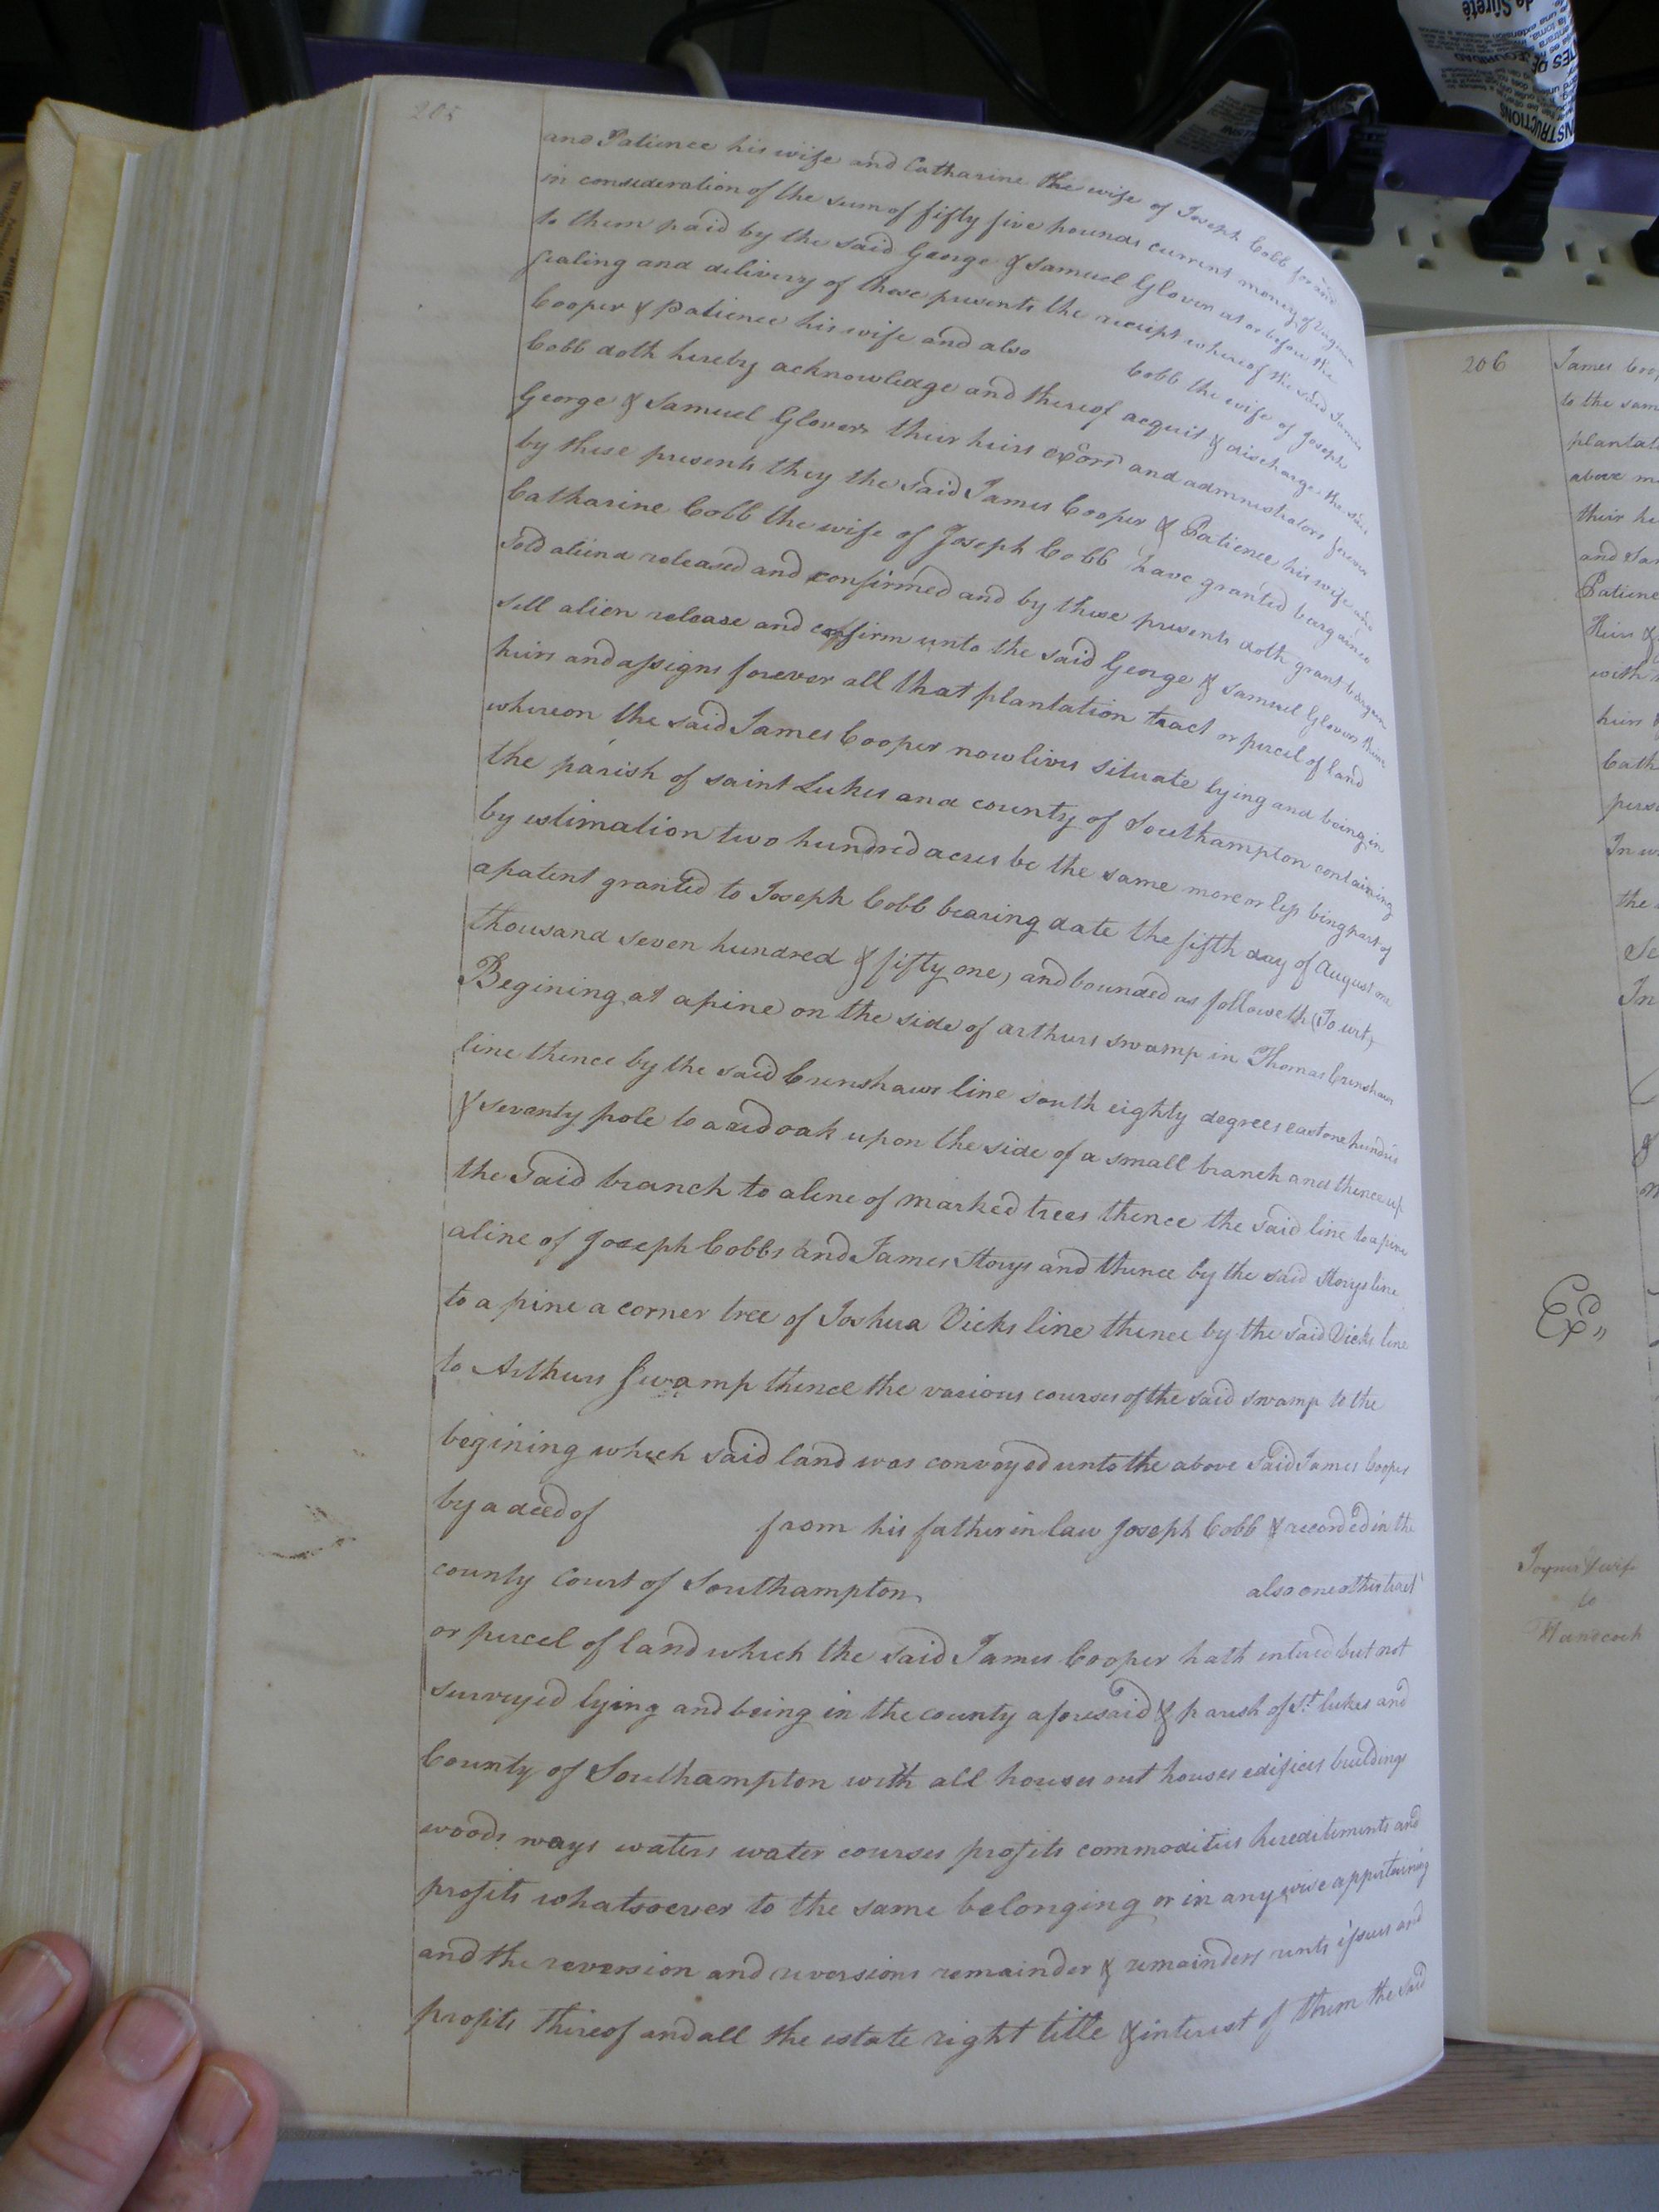 205
and Patience his wife and Catharine the wife of Joseph Cobb for and
in consideration of the sum of fifty five pounds current money of Virginia
to them paid by the said George & Samuel Glover at or before the
sealing and delivery of these presents the receipt whereof the said James
Cooper & Patience his wife and also Cobb the wife of Joseph
Cobb doth hereby acknowledge and thereof acquit & discharge the said
George & Samuel Glovers their heirs Exors and admnistrators forever
by these presents they the said James Cooper & Patience his wife and
Catharine Cobb the wife of Joseph Cobb have granted bargained
sold aliend released and confirmed and by these presents doth grant bargain
sell alien release and confirm unto the said George & Samuel Glovers their
heirs and assigns forever all that plantation tract or percel of land
whereon the said James Cooper now lives situate lying and being in
the parish of saint Lukes and county of Southampton containing
by estimation two hundred acres be the same more or less bing part of
a patent granted to Joseph Cobb bearing date the fifth day of August one
thousand seven hundred & fifty one, and bounded as followeth (To wit)
Begining at a pine on the side of arthurs swamp in Thomas Crenshaws
line thence by the said Crenshaws line south eighty degrees east one hundred
& seventy pole to a red oak upon the side of a small branch and thence up
the said branch to a line of marked trees thence the said line to a pine
a line of Joseph Cobbs and James Storys and thence by the said Storys line
to a pine a corner tree of Joshua Vicks line thence by the said Vicks line
to Arthurs Swamp thence the various courses of the said swamp to the
begining which said land was conveyed unto the above said James Cooper
by a deed of from his father in law Joseph Cobb & recorded in the
county Court of Southampton also one other tract
or percel of land which the said James Cooper hath entered but not
surveyed lying and being in the county aforesaid & parish of St. lukes and
County of Southampton with all houses out houses edifices buildings
woods ways waters water courses profits commodities hereditiments and
profits whatsoever to the same belonging or in any wise appertaining
and the reversion and reversions remainder & remainders rents issues and
profits thereof and all the estate right title & interest of them the said
206
James Coop
to the sam
plantati
above m
their he
and Sam
Patience
Heirs &
with
heirs &
Cath
perso
In w
the
Se
In
Ex,,
Joyner & wife
to
Hancock
de Sûreté
INSTRUCTIONS